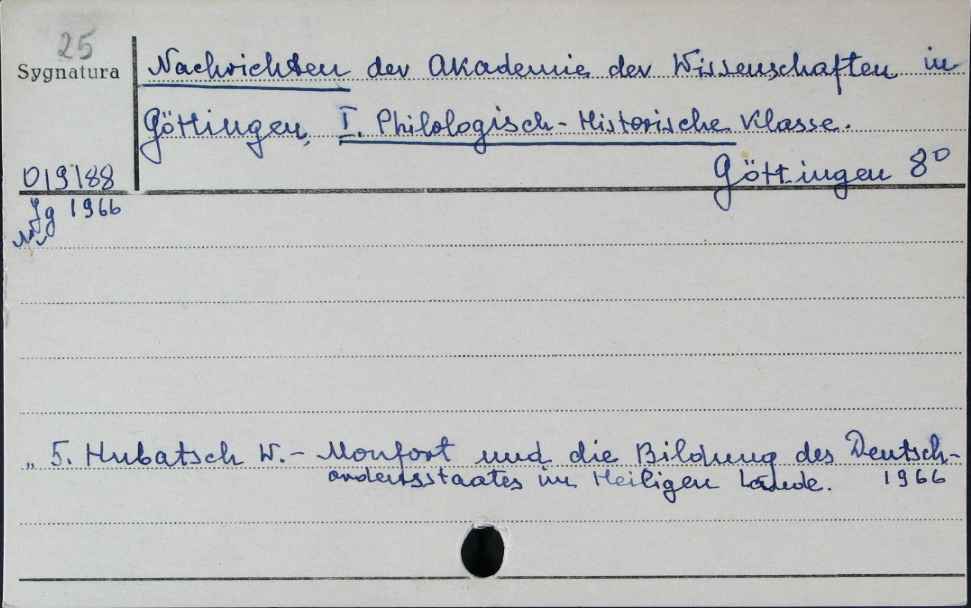 25
Sygnatura
Nachrichten der Akademie der Wissenschaften in
Göttingen, I. Philologisch-Historische Klasse.
Göttingen 8°
019188
Jg 1966
„ 5. Hubatsch W. - Monfort und die Bildung des Deutsch-
ordensstaates im Heiligen Lande. 1966